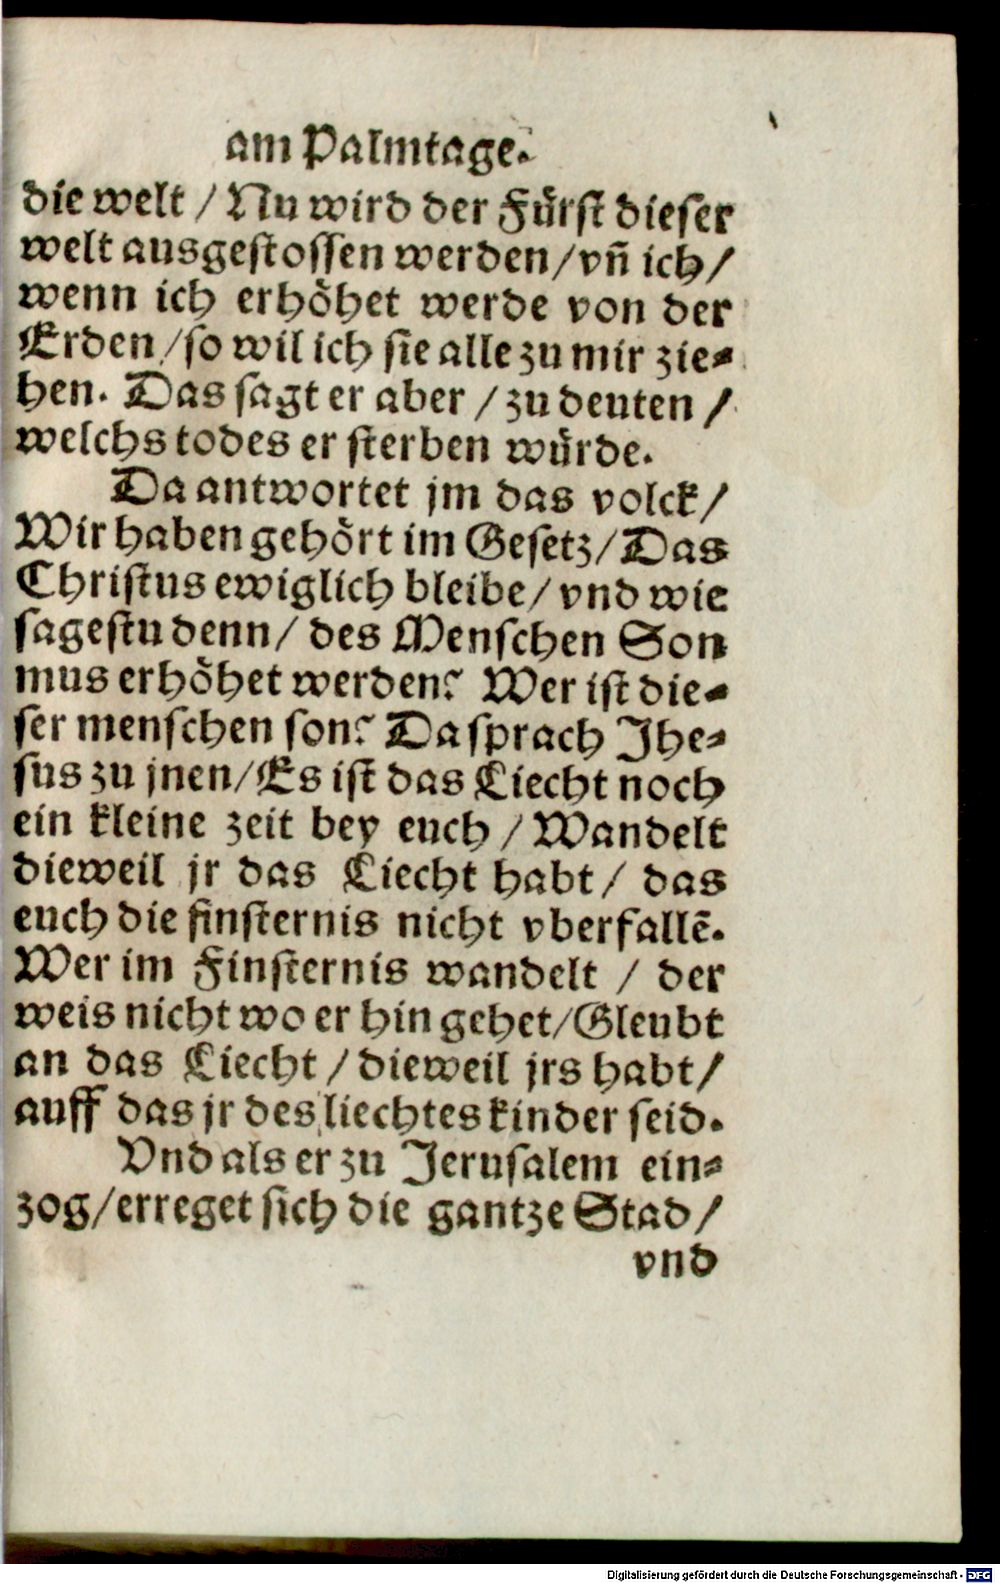 am Palmtage.
die welt / Nu wird der Fürst dieser
welt ausgestossen werden / vñ ich /
wenn ich erhöhet werde von der
Erden / so wil ich sie alle zu mir zie-
hen. Das sagt er aber / zu deuten /
welchs todes er sterben würde.
Da antwortet jm das volck /
Wir haben gehört im Gesetz / Das
Christus ewiglich bleibe / vnd wie
sagestu denn / des Menschen Son
mus erhöhet werden? Wer ist die-
ser menschen son? Da sprach Jhe-
sus zu jnen / Es ist das Liecht noch
ein kleine zeit bey euch / Wandelt
dieweil jr das Liecht habt / das
euch die finsternis nicht vberfallē.
Wer im Finsternis wandelt / der
weis nicht wo er hin gehet / Gleubt
an das Liecht / dieweil jrs habt /
auff das jr des liechtes kinder seid.
Vnd als er zu Jerusalem ein-
zog / erreget sich die gantze Stad /
vnd
Digitalisierung gefördert durch die Deutsche Forschungsgemeinschaft - DFG